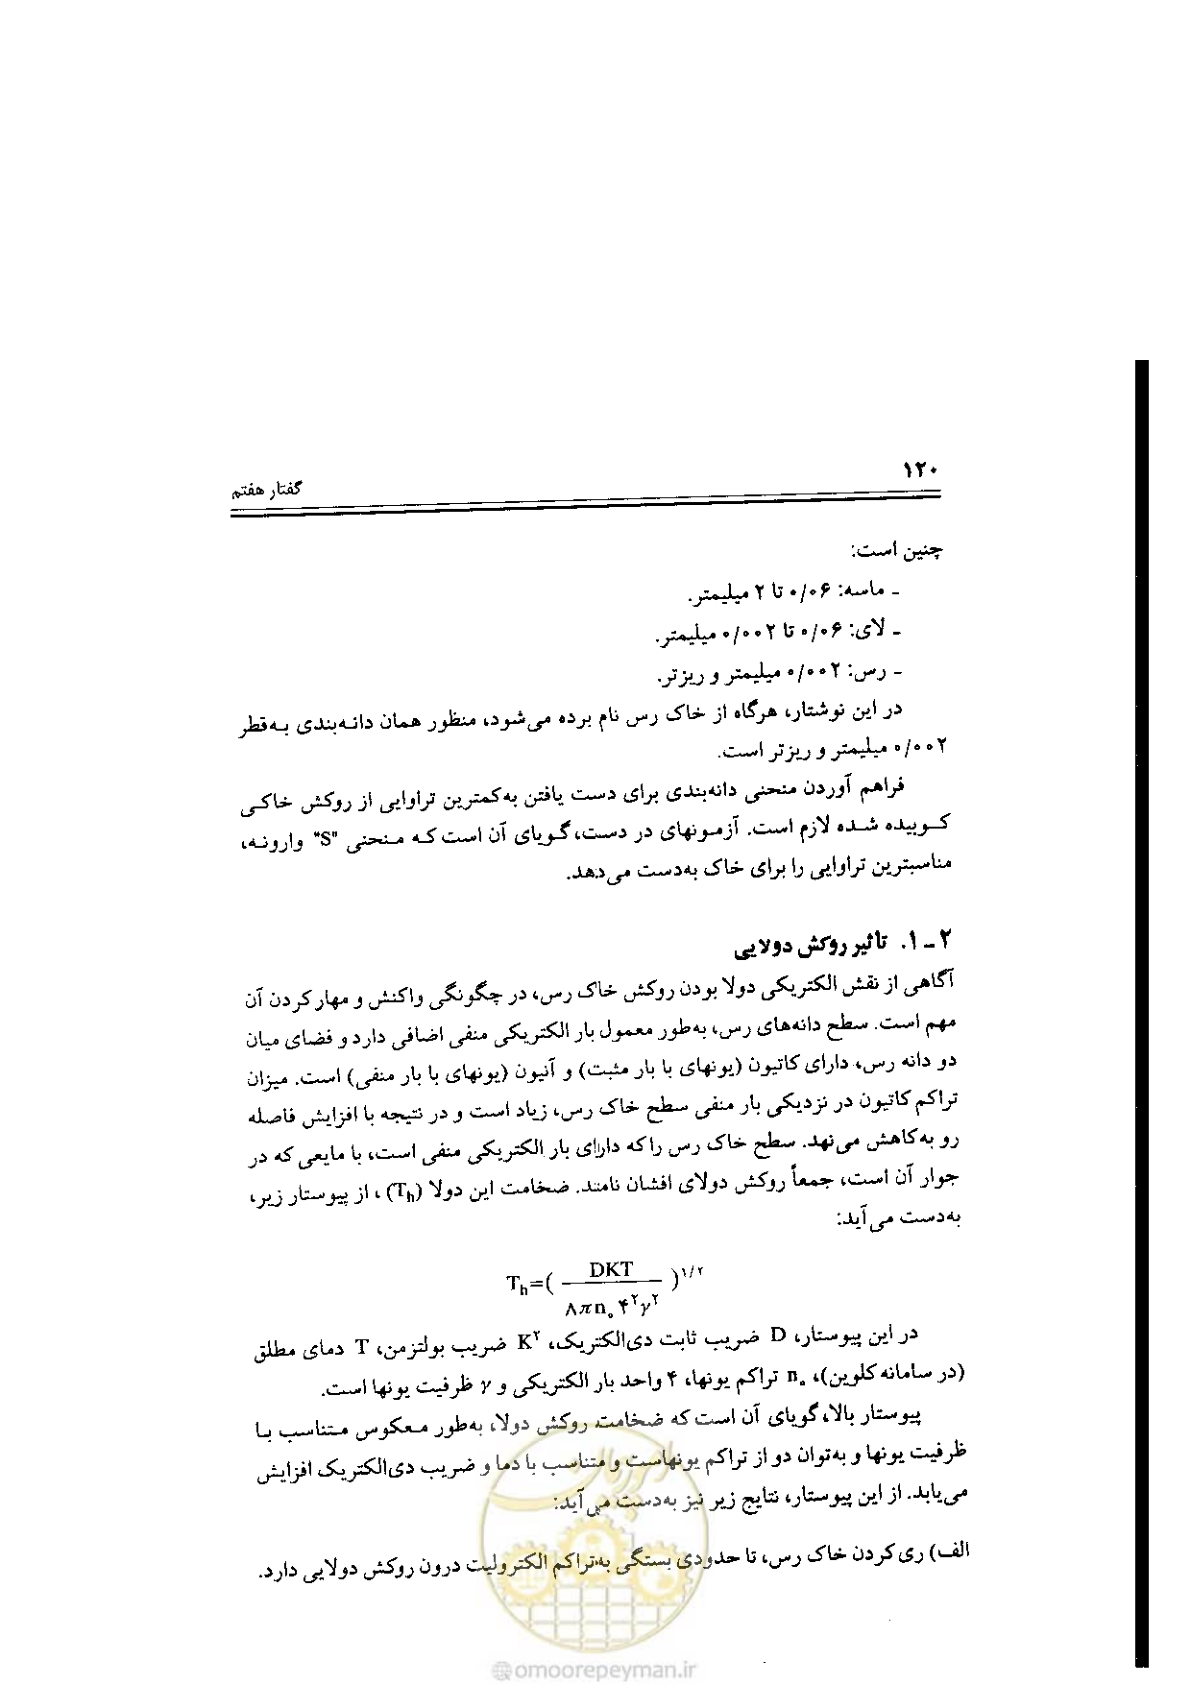 ۱۲۰
گفتار هفتم
چنین است:
ـ ماسه: ۰/۰۶ تا ۲ میلیمتر.
ـ لای: ۰/۰۶ تا ۰/۰۰۲ میلیمتر.
ـ رس: ۰/۰۰۲ میلیمتر و ریزتر.
در این نوشتار، هرگاه از خاک رس نام برده می‌شود، منظور همان دانه‌بندی به‌قطر
۰/۰۰۲ میلیمتر و ریزتر است.
فراهم آوردن منحنی دانه‌بندی برای دست یافتن به‌کمترین تراوایی از روکش خاکی
کوبیده شده لازم است. آزمونهای در دست، گویای آن است که منحنی "S" وارونه،
مناسبترین تراوایی را برای خاک به‌دست می‌دهد.
۲ ـ ۱. تاثیر روکش دولایی
آگاهی از نقش الکتریکی دولا بودن روکش خاک رس، در چگونگی واکنش و مهار کردن آن
مهم است. سطح دانه‌های رس، به‌طور معمول بار الکتریکی منفی اضافی دارد و فضای میان
دو دانه رس، دارای کاتیون (یونهای با بار مثبت) و آنیون (یونهای با بار منفی) است. میزان
تراکم کاتیون در نزدیکی بار منفی سطح خاک رس، زیاد است و در نتیجه با افزایش فاصله
رو به‌کاهش می‌نهد. سطح خاک رس را که دارای بار الکتریکی منفی است، با مایعی که در
جوار آن است، جمعاً روکش دولای افشان نامند. ضخامت این دولا (Th) ، از پیوستار زیر،
به‌دست می‌آید:
Th=( DKT / ۸πn₀ ۴^۲γ^۲ )^۱/۲
در این پیوستار، D ضریب ثابت دی‌الکتریک، K^۲ ضریب بولتزمن، T دمای مطلق
(در سامانه کلوین)، n₀ تراکم یونها، ۴ واحد بار الکتریکی و γ ظرفیت یونها است.
پیوستار بالا، گویای آن است که ضخامت روکش دولا، به‌طور معکوس متناسب با
ظرفیت یونها و به‌توان دو از تراکم یونهاست و متناسب با دما و ضریب دی‌الکتریک افزایش
می‌یابد. از این پیوستار، نتایج زیر نیز به‌دست می‌آید:
الف) ری کردن خاک رس، تا حدودی بستگی به‌تراکم الکترولیت درون روکش دولایی دارد.
@omoorepeyman.ir